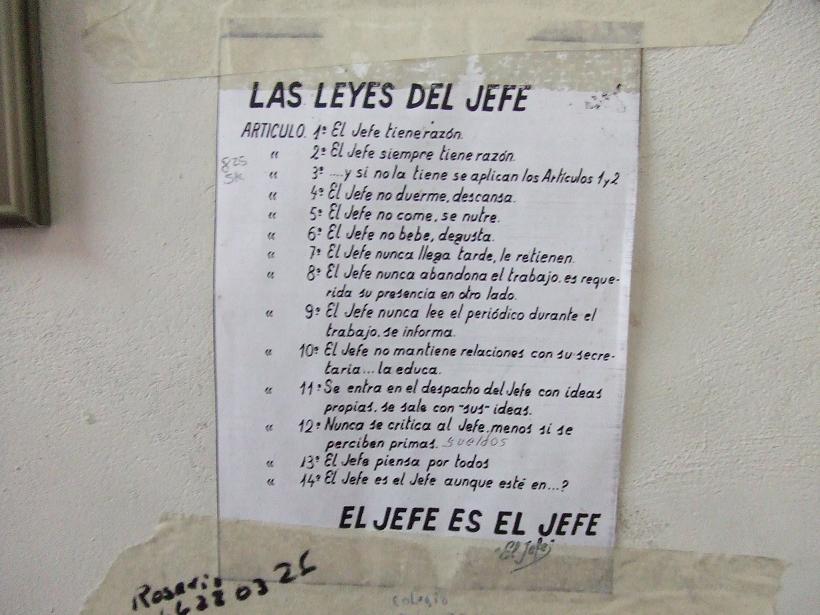 LAS LEYES DEL JEFE
ARTICULO. 1º El Jefe tiene razón.
“ 2º El Jefe siempre tiene razón.
825
“ 3º ....y si no la tiene se aplican los Artículos 1 y 2
SK
“ 4º El Jefe no duerme, descansa.
“ 5º El Jefe no come, se nutre.
“ 6º El Jefe no bebe, degusta.
“ 7º El Jefe nunca llega tarde, le retienen.
“ 8º El Jefe nunca abandona el trabajo, es reque-
rida su presencia en otro lado.
“ 9º El Jefe nunca lee el periódico durante el
trabajo, se informa.
“ 10º El Jefe no mantiene relaciones con su secre-
taria... la educa.
“ 11º Se entra en el despacho del Jefe con ideas
propias, se sale con "sus" ideas.
“ 12º Nunca se critica al Jefe, menos si se
perciben primas. sueldos
“ 13º El Jefe piensa por todos
“ 14º El Jefe es el Jefe aunque esté en...?
EL JEFE ES EL JEFE
El Jefe
Rosario
colegio